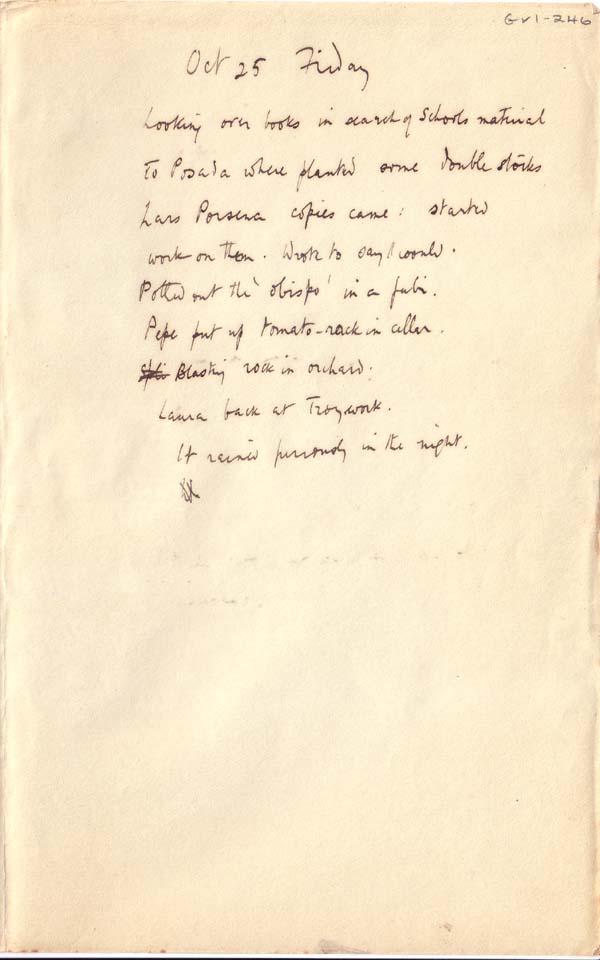 GV1-246
Oct 25 Friday
Looking over books in search of Schools material
To Posada where planted some double stocks
Lars Porsena copies came: started
work on them. Wrote to say I would.
Potted out the 'obispo' in a
Pepe put up tomato-rack in cellar.
Blasting rock in orchard.
Laura back at Troy work.
It rained furiously in the night.